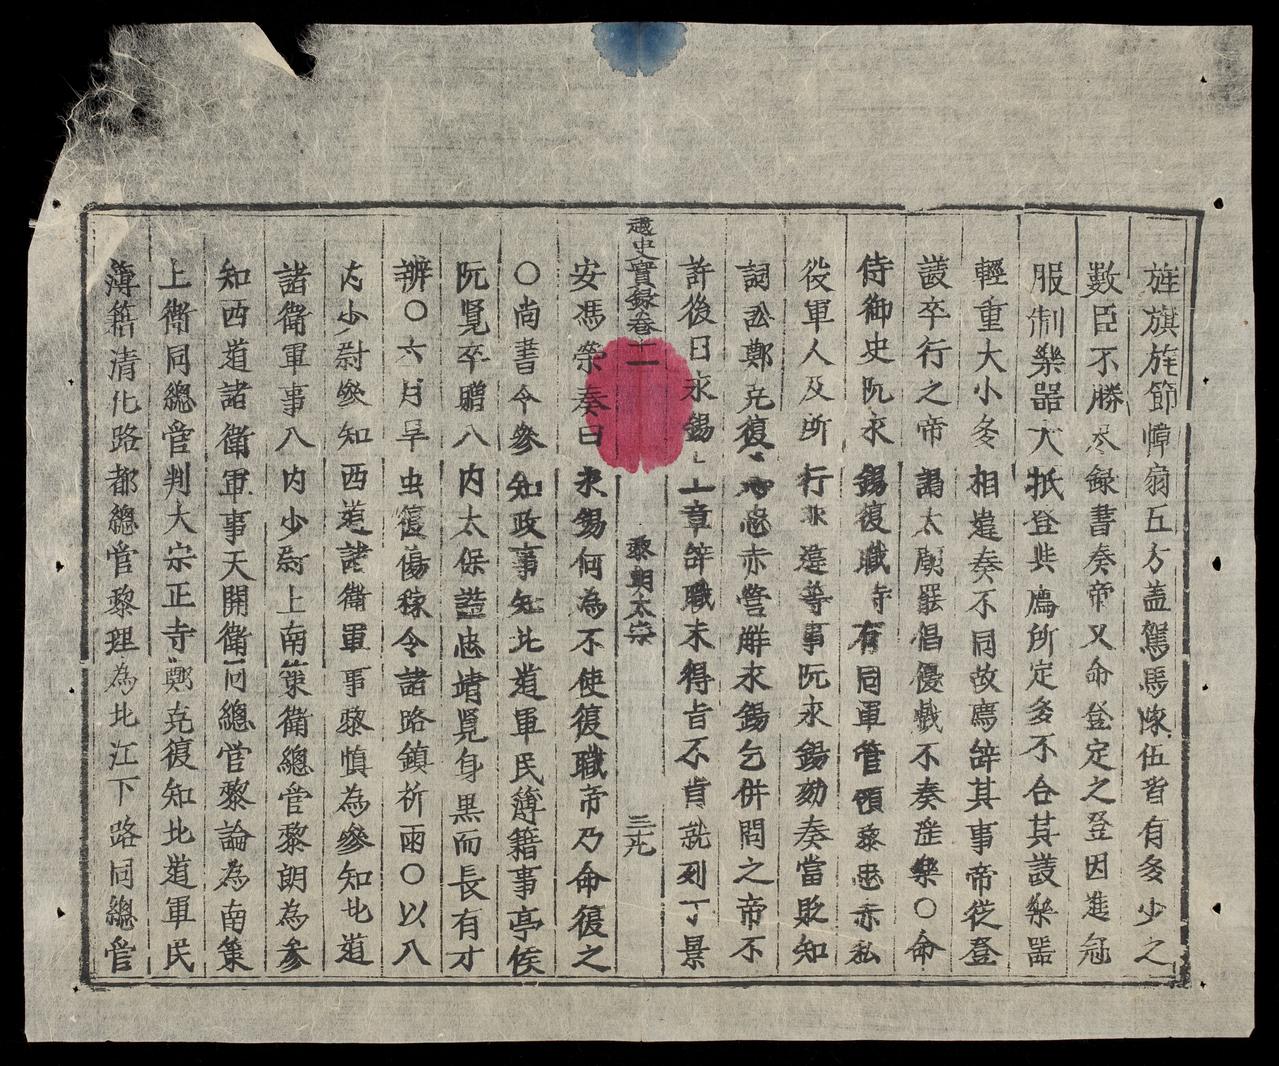 旌旗旄節幛扇五方盖駕馬隊伍皆有多少之
數臣不勝尽録書奏帝又命登定之登因進冠
服制樂器大抵登與廌所定多不合其議樂器
輕重大小多相違奏不同故廌辝其事帝從登
議卒行之帝謁太廟罷倡優戲不奏淫樂○命
侍御史阮永錫復職時有同軍管領黎忠亦私
役軍人及所行非違等事阮永錫劾奏當貶知
詞訟鄭克復忠亦營觧永錫乞併問之帝不
許後日永錫上章辝職未得旨不肯就列丁景
越史實録卷十一 黎朝太宗 三十九
安馮榮奏曰永錫何為不使復職帝乃命復之
○尚書令參知政事知北道軍民簿籍事亭侯
阮覧卒贈八内太保諡忠靖覧身黒而長有才
辨○六月旱虫復傷稼令諸路鎮祈雨○以八
内少尉參知西道諸衛軍事黎慎為參知北道
諸衛軍事八内少尉上南策衛總管黎朗為參
知西道諸衛軍事天開衛同總管黎論為南策
上衛同總管判大宗正寺鄭克復知北道軍民
簿籍清化路都總管黎理為北江下路同總管